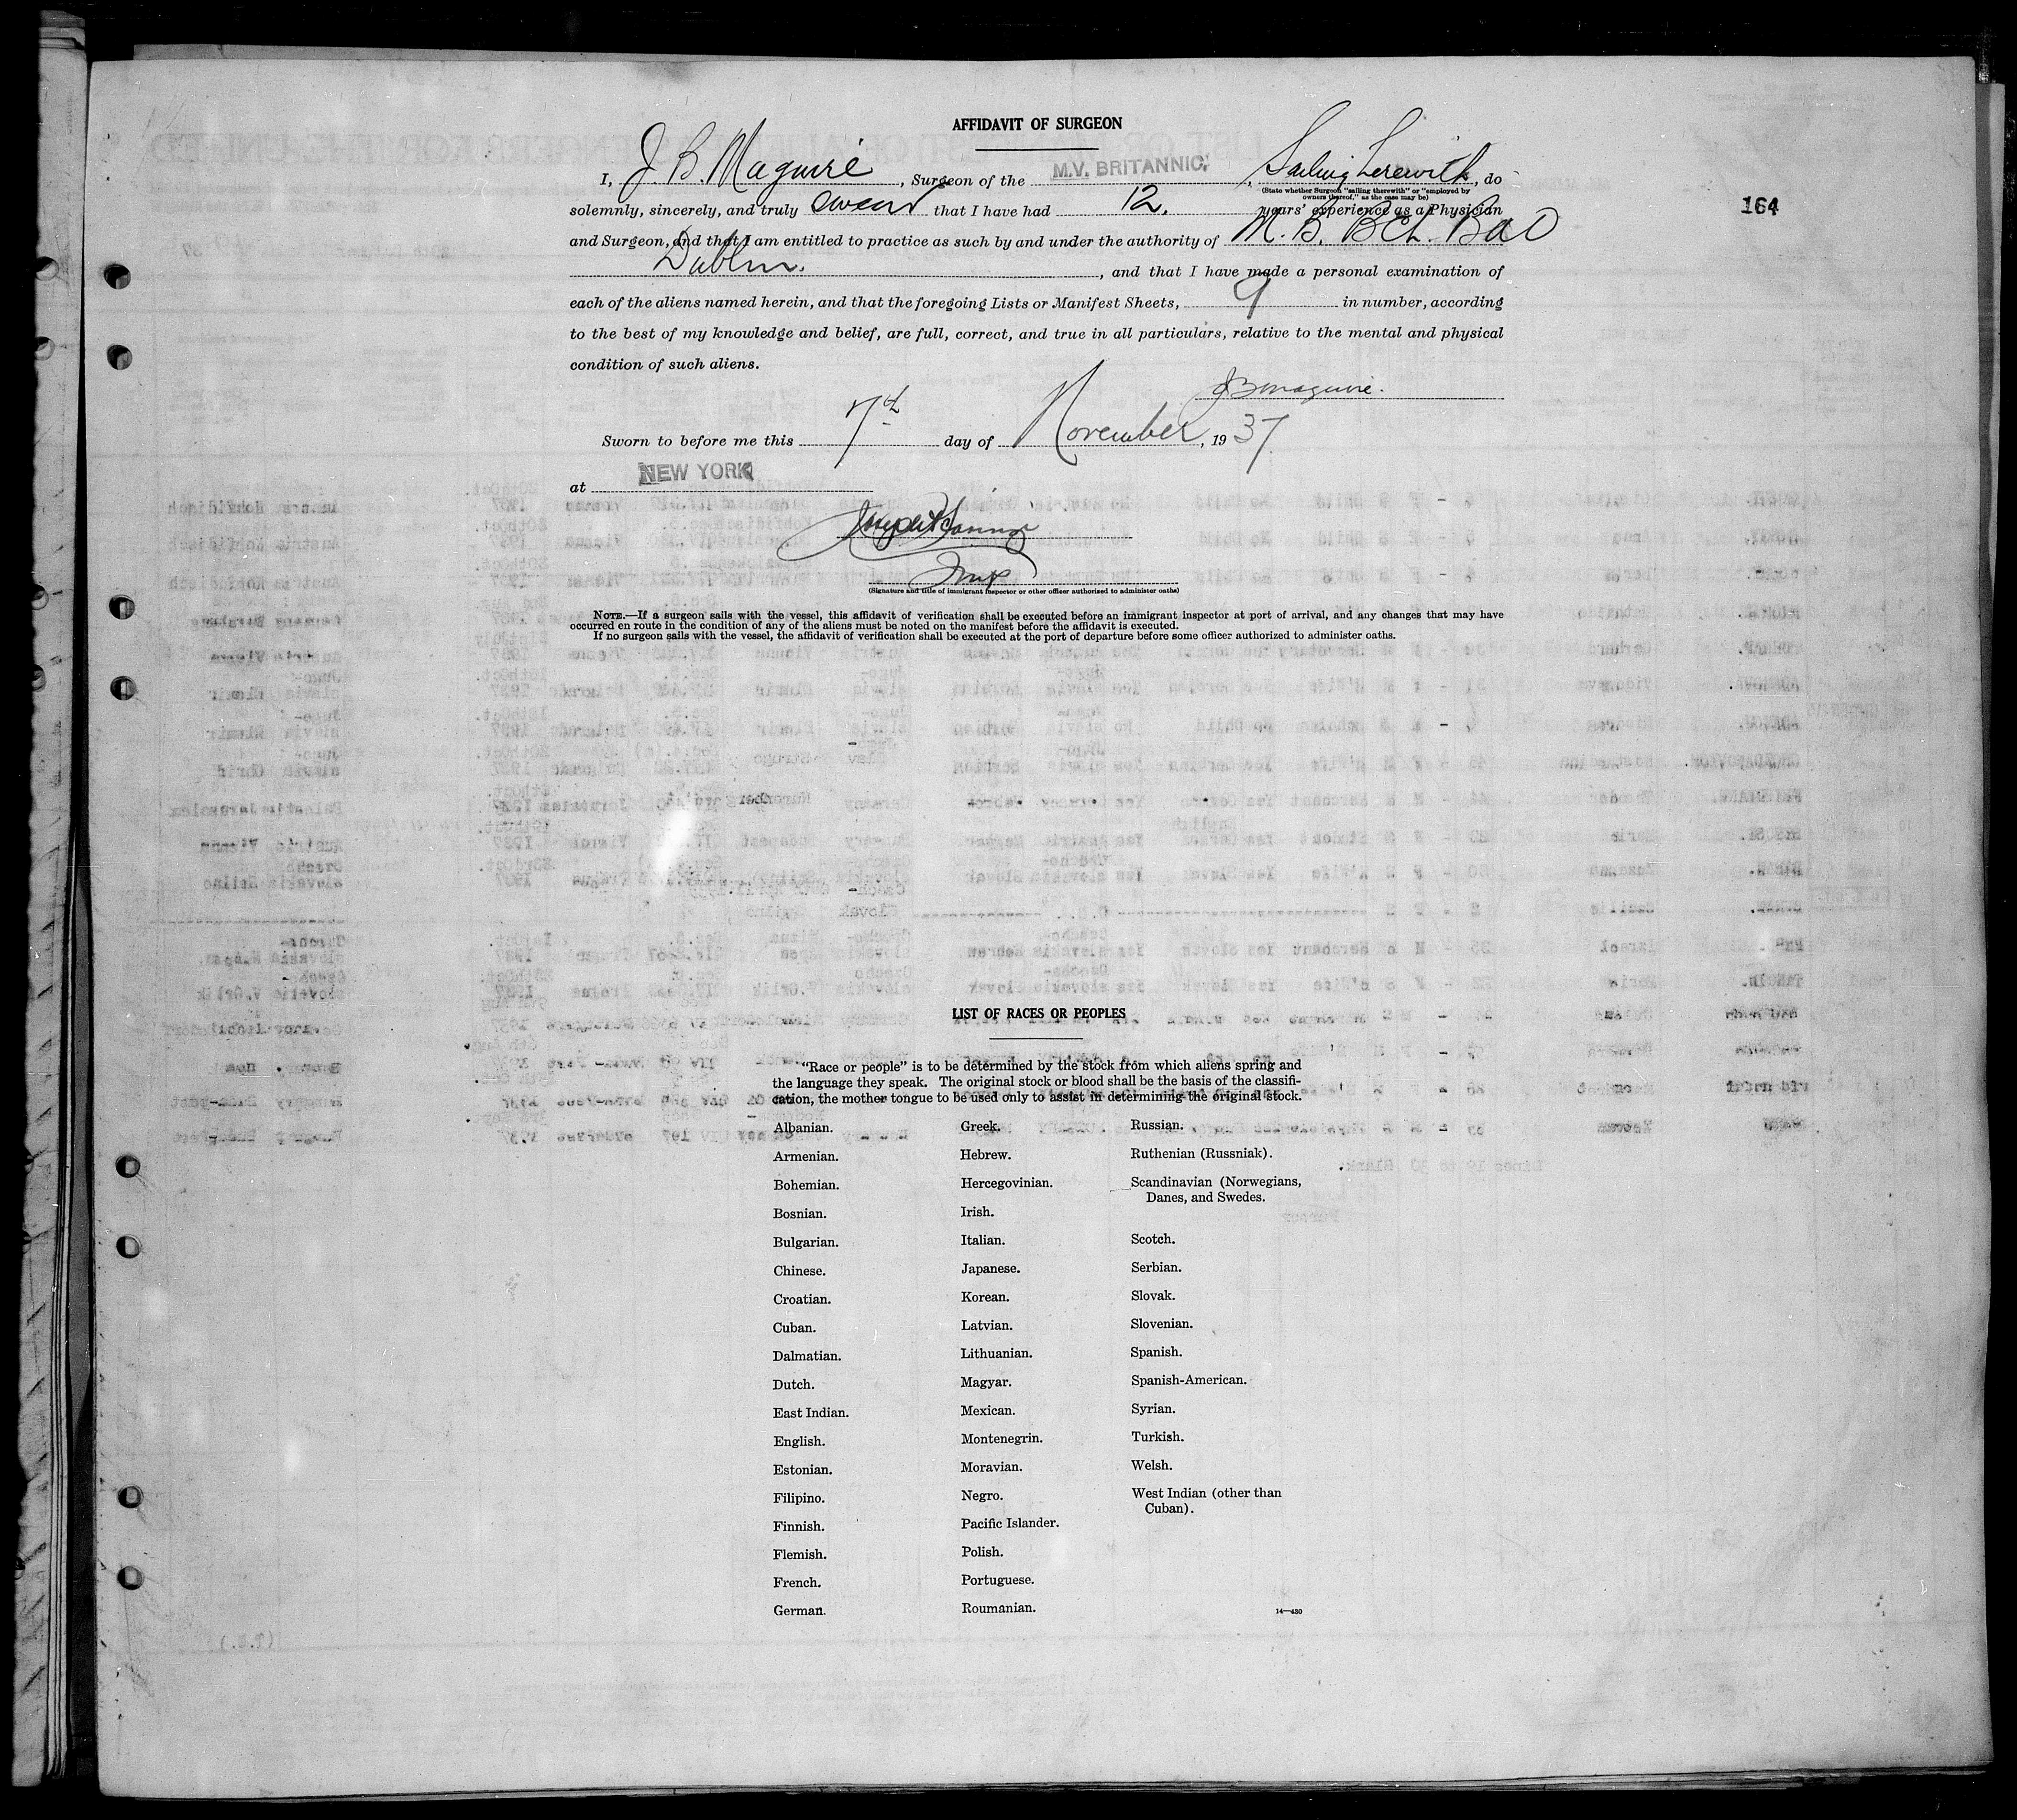 AFFIDAVIT OF SURGEON
I, J. B. Maguire, Surgeon of the M.V. BRITANNIC, Sailing herewith, do
(State whether Surgeon "sailing therewith" or "employed by
owners thereof," as the case may be)
solemnly, sincerely, and truly swear that I have had 12. years' experience as a Physician
164
and Surgeon, and that I am entitled to practice as such by and under the authority of M. B. BCh. BAO
Dublin., and that I have made a personal examination of
each of the aliens named herein, and that the foregoing Lists or Manifest Sheets, 9 in number, according
to the best of my knowledge and belief, are full, correct, and true in all particulars, relative to the mental and physical
condition of such aliens.
J B Maguire.
Sworn to before me this 7th day of November, 1937
at NEW YORK
Insp
(Signature and title of immigrant inspector or other officer authorized to administer oaths)
NOTE.—If a surgeon sails with the vessel, this affidavit of verification shall be executed before an immigrant inspector at port of arrival, and any changes that may have
occurred en route in the condition of any of the aliens must be noted on the manifest before the affidavit is executed.
If no surgeon sails with the vessel, the affidavit of verification shall be executed at the port of departure before some officer authorized to administer oaths.
LIST OF RACES OR PEOPLES
"Race or people" is to be determined by the stock from which aliens spring and
the language they speak. The original stock or blood shall be the basis of the classifi-
cation, the mother tongue to be used only to assist in determining the original stock.
Albanian.
Armenian.
Bohemian.
Bosnian.
Bulgarian.
Chinese.
Croatian.
Cuban.
Dalmatian.
Dutch.
East Indian.
English.
Estonian.
Filipino.
Finnish.
Flemish.
French.
German.
Greek.
Hebrew.
Hercegovinian.
Irish.
Italian.
Japanese.
Korean.
Latvian.
Lithuanian.
Magyar.
Mexican.
Montenegrin.
Moravian.
Negro.
Pacific Islander.
Polish.
Portuguese.
Roumanian.
Russian.
Ruthenian (Russniak).
Scandinavian (Norwegians,
Danes, and Swedes.
Scotch.
Serbian.
Slovak.
Slovenian.
Spanish.
Spanish-American.
Syrian.
Turkish.
Welsh.
West Indian (other than
Cuban).
14—430